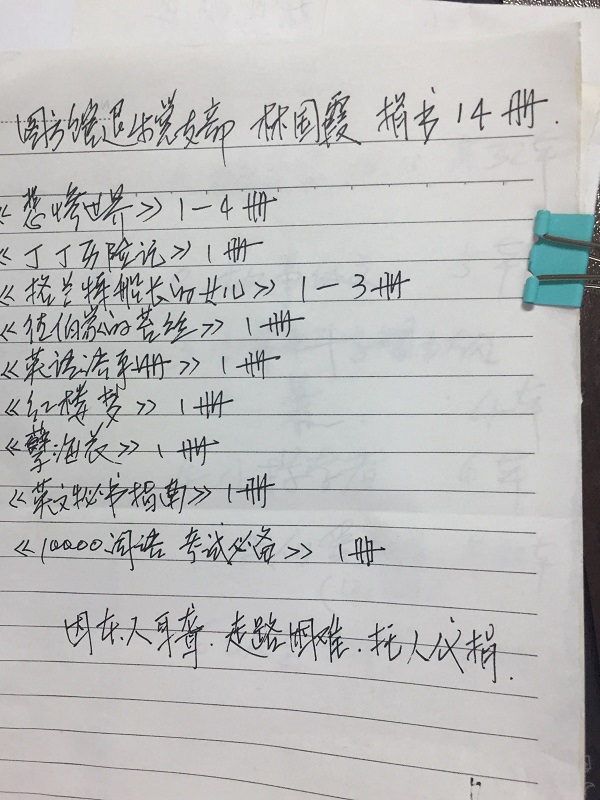 图书馆退休党支部 林国霞 捐书 14册.
《悲惨世界》1-4册
《丁丁历险记》1册
《格兰特船长的女儿》1-3册
《德伯家的苔丝》1册
《英语语手册》1册
《红楼梦》1册
《孽海花》1册
《英文秘书指南》1册
《10000词语 考试必备》1册
因本人耳聋.走路困难.托人代捐.